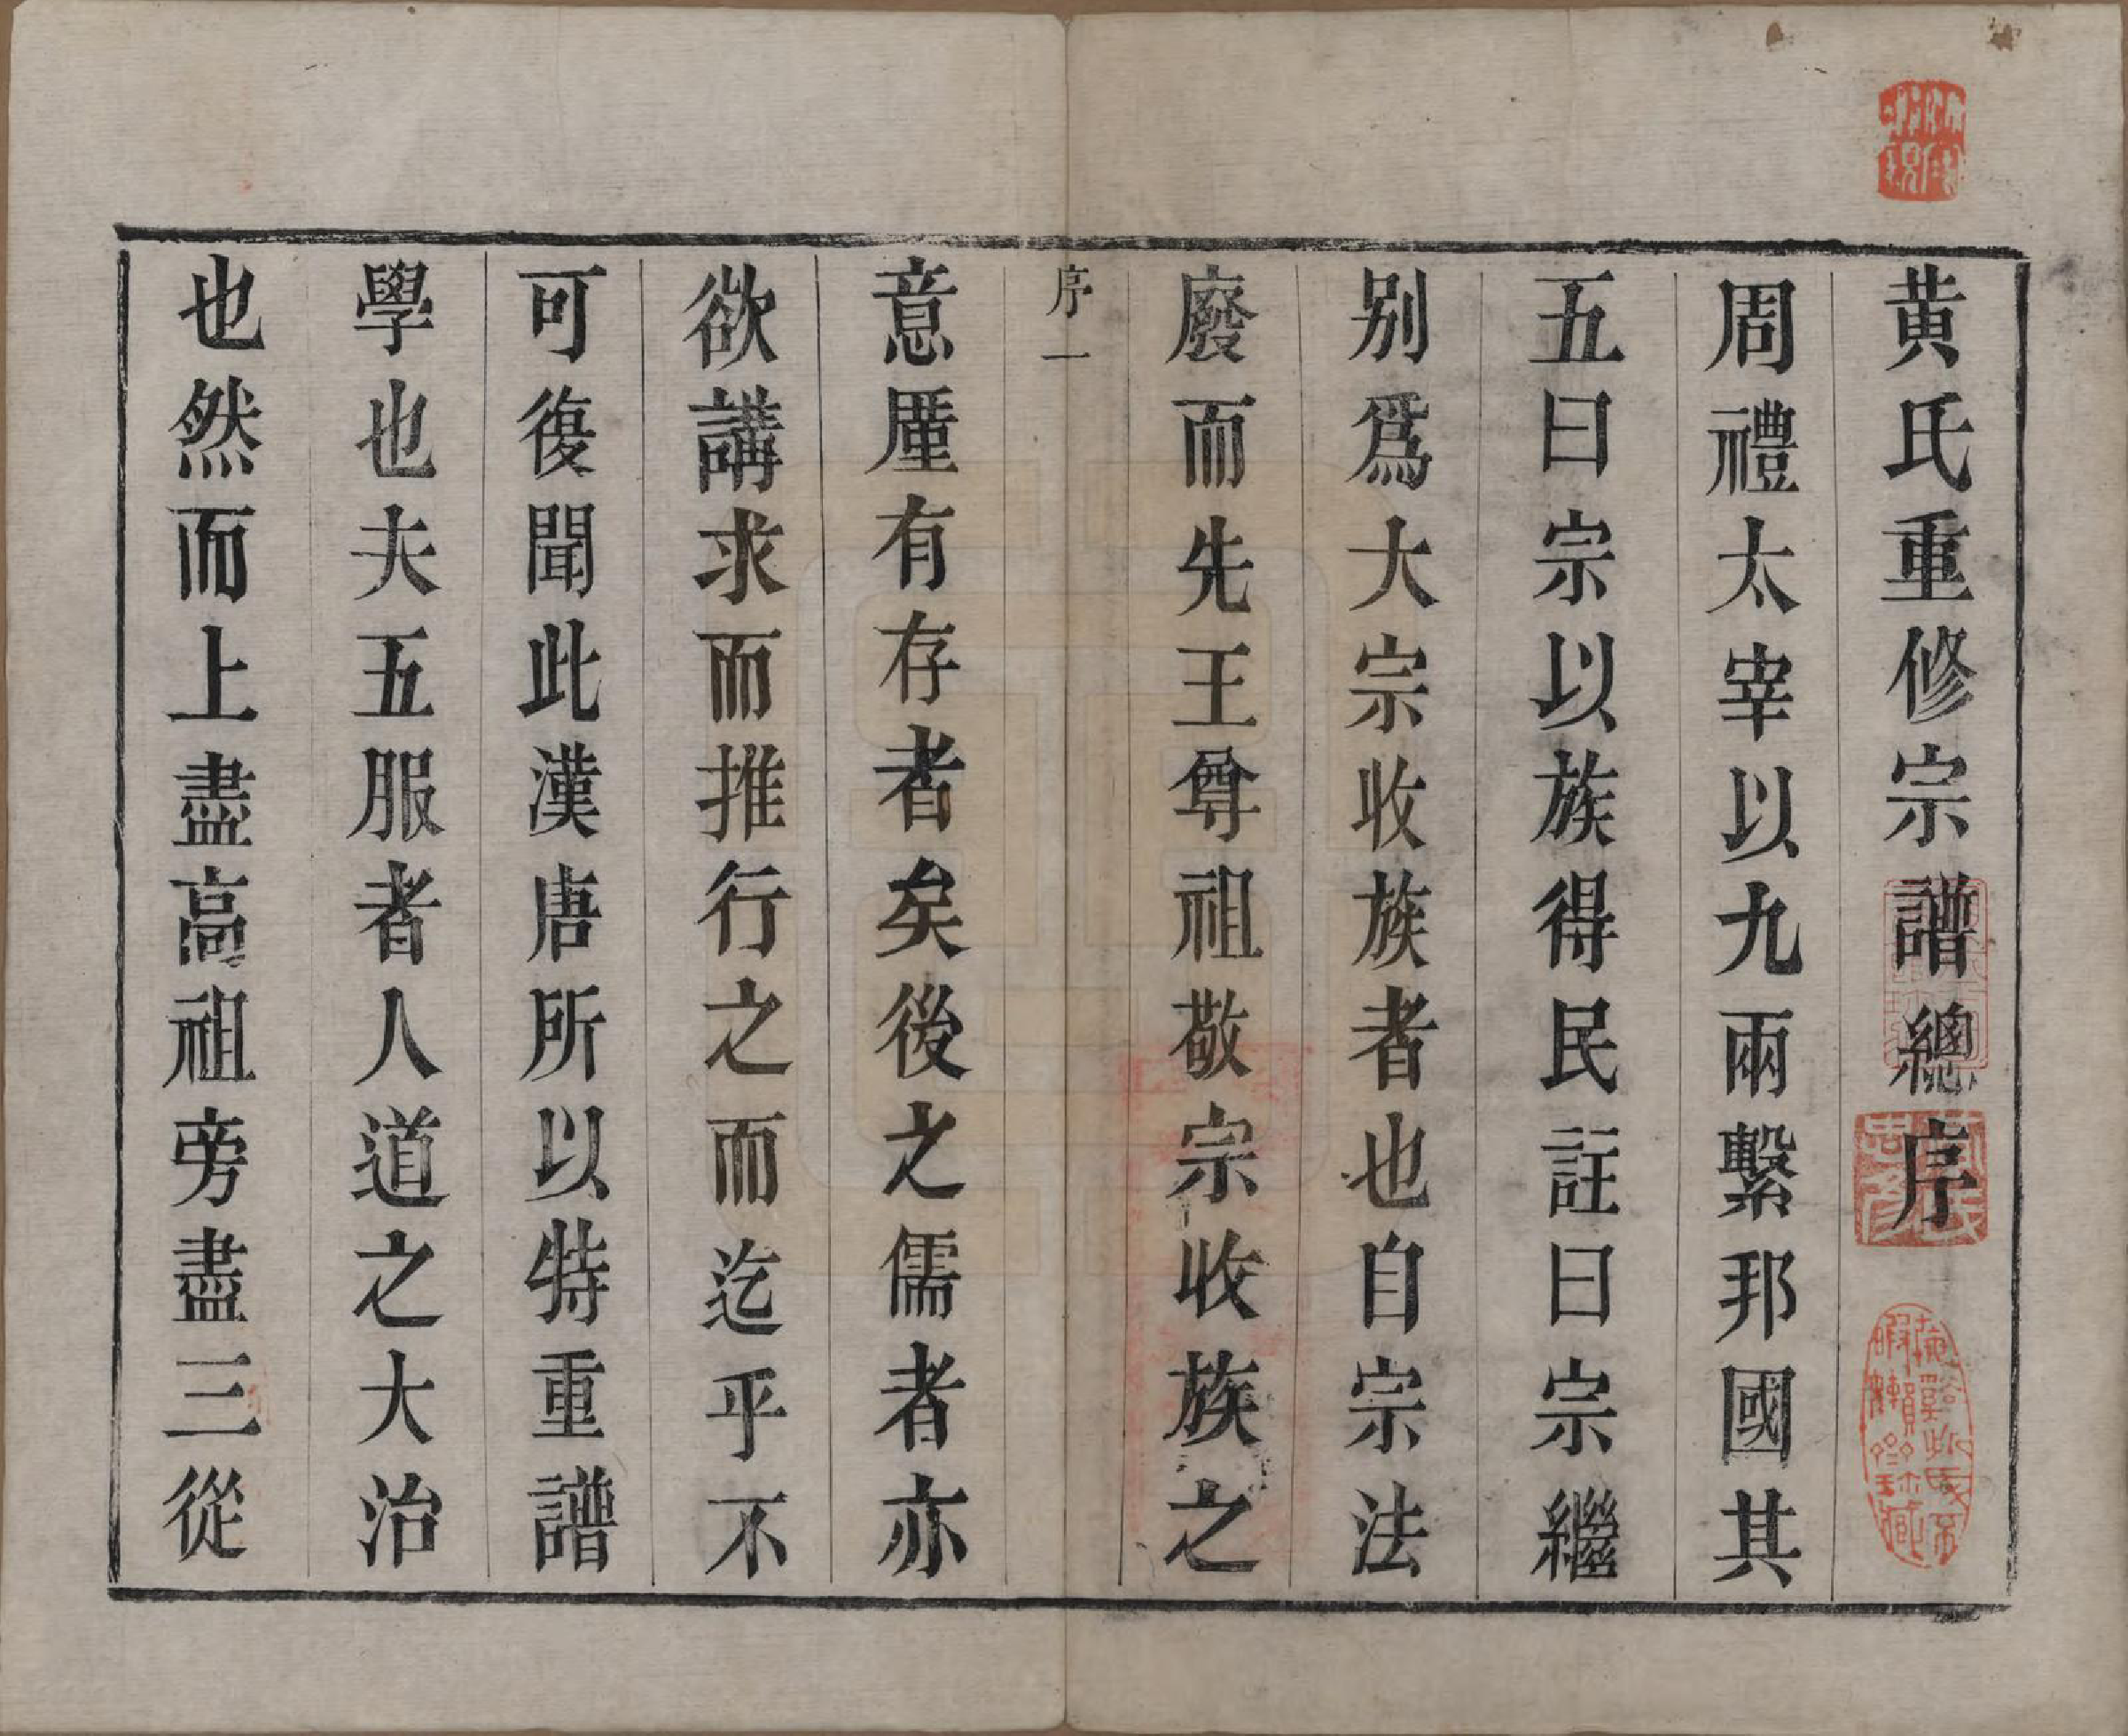 黄氏重修宗譜總序
周禮太宰以九兩繫邦國其
五曰宗以族得民註曰宗繼
别爲大宗收族者也自宗法
廢而先王尊祖敬宗收族之
序一
意厪有存者矣後之儒者亦
欲講求而推行之而迄乎不
可復聞此漢唐所以特重譜
學也夫五服者人道之大治
也然而上盡高祖旁盡三從